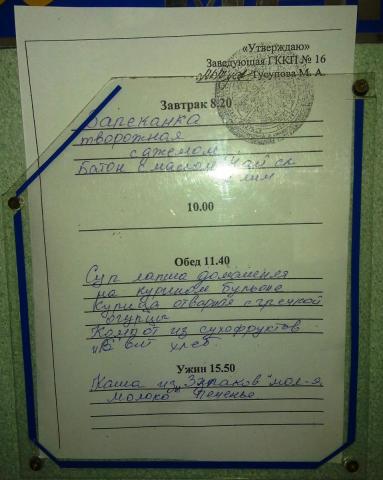 «Утверждаю»
Заведующая ГККП № 16
Тусупова М. А.
Завтрак 8.20
Запеканка
творожная
с джемом
Батон с маслом Чай сл
10.00
Обед 11.40
Суп лапша домашняя
на курином бульоне
Курица отварная с гречкой
огурцы
Компот из сухофруктов
хлеб
Ужин 15.50
Каша из злаков мол-я
молоко Печенье